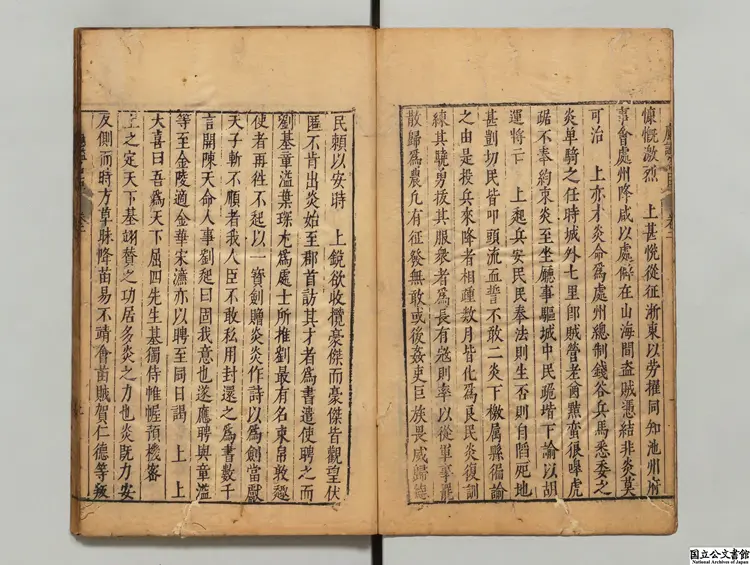 慷慨激烈　上甚悅從征浙東以勞擢同知池州府
事會處州降咸以處僻在山海間盜賊憑結非炎莫
可治　上亦才炎命爲處州總制錢谷兵馬悉委之
炎单騎之任時城外七里卽賊營老禽黠蛮狠嘷虎
踞不奉約束炎至坐廳事驅城中民跪堦下諭以胡
運將亡　上起兵安民民奉法則生否則自陷死地
甚剴切民皆叩頭流血誓不敢二炎下檄属縣徧諭
之由是投兵來降者相踵数月皆化爲良民炎復訓
練其驍勇拔其服衆者爲長有寇則率以從軍事罷
散歸爲農凢有征發無敢或後姦吏巨族畏威歸德
民頼以安時　上鋭欲收攬豪傑而豪傑皆觀望伏
匿不肯出炎始至郡首訪其才者爲書遣使聘之而
劉基章溢葉琛尤爲處士所推劉最有名柬帛敦趣
使者再徃不起以一寳劍贈炎炎作詩以爲劍當獻
天子斬不順者我人臣不敢私用封還之爲書數千
言開陳天命人事劉起曰固我意也遂應聘與章溢
等至金陵適金華宋濂亦以聘至同日謁　上　上
大喜曰吾爲天下屈四先生基獨侍帷幄預機宻
上之定天下基翊賛之功居多炎之力也炎旣力安
反側而時方草昧降苗易不靖會苗賊賀仁德等叛
国立公文書館
National Archives of Japan